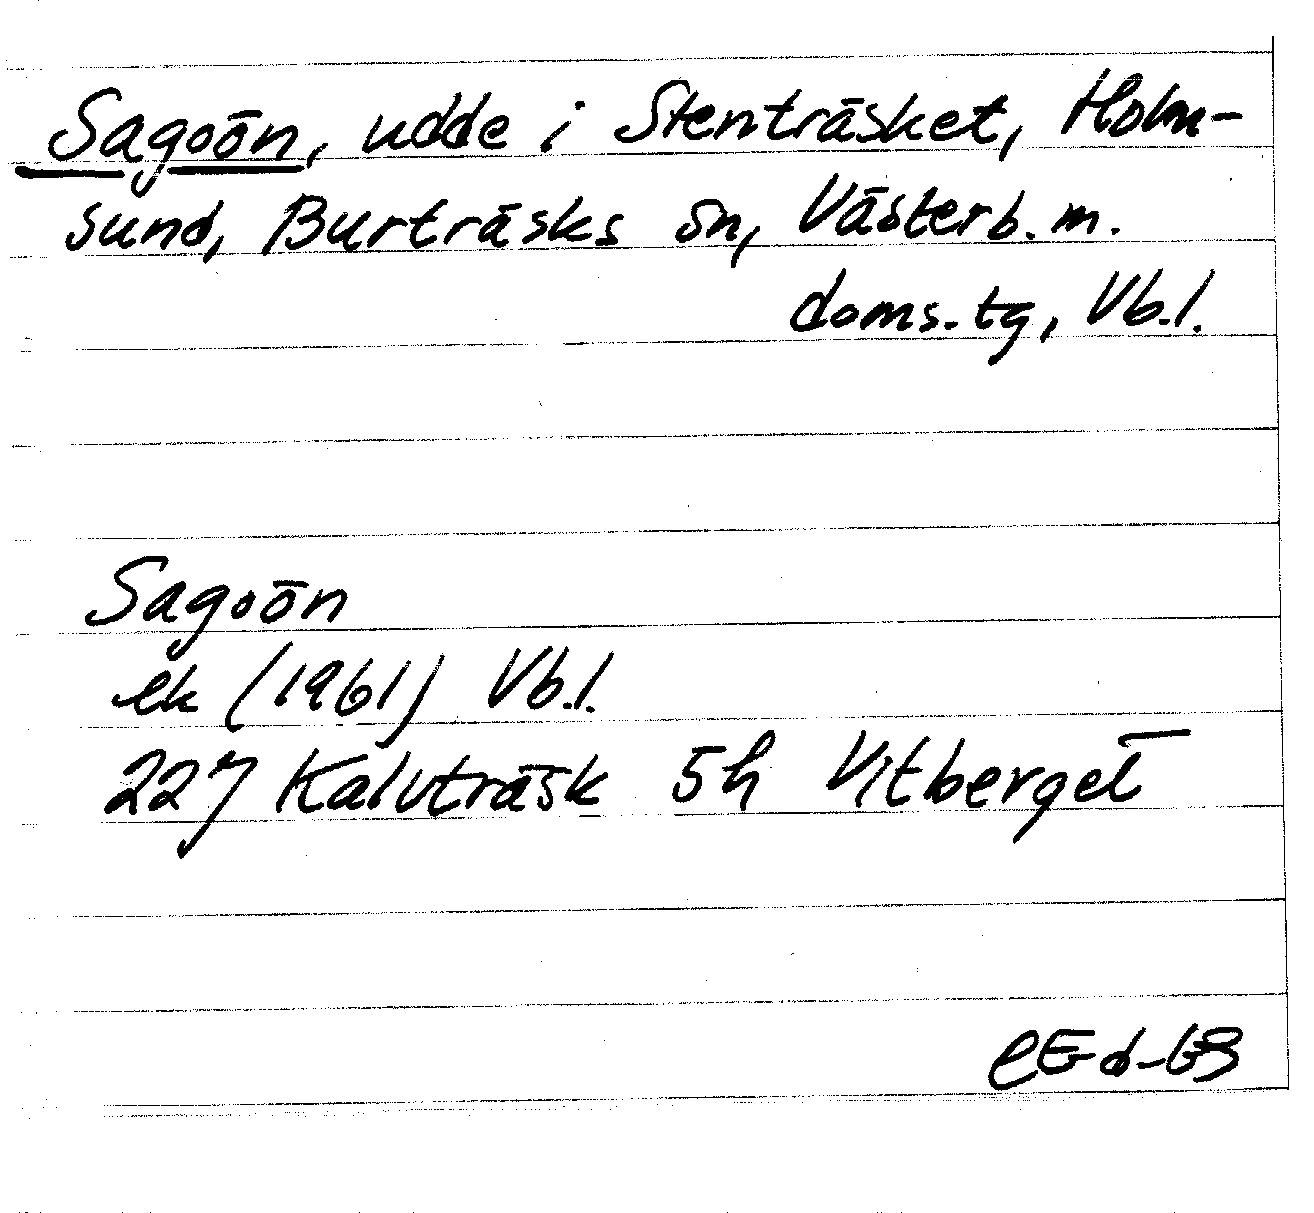 Sagoön, udde i Stenträsket, Holm-
sund, Burträsks sn, Västerb. m.
doms. tg, Vb.l.
Sagoön
ek (1961) Vb.l.
227 Kalvträsk 5h Vitberget